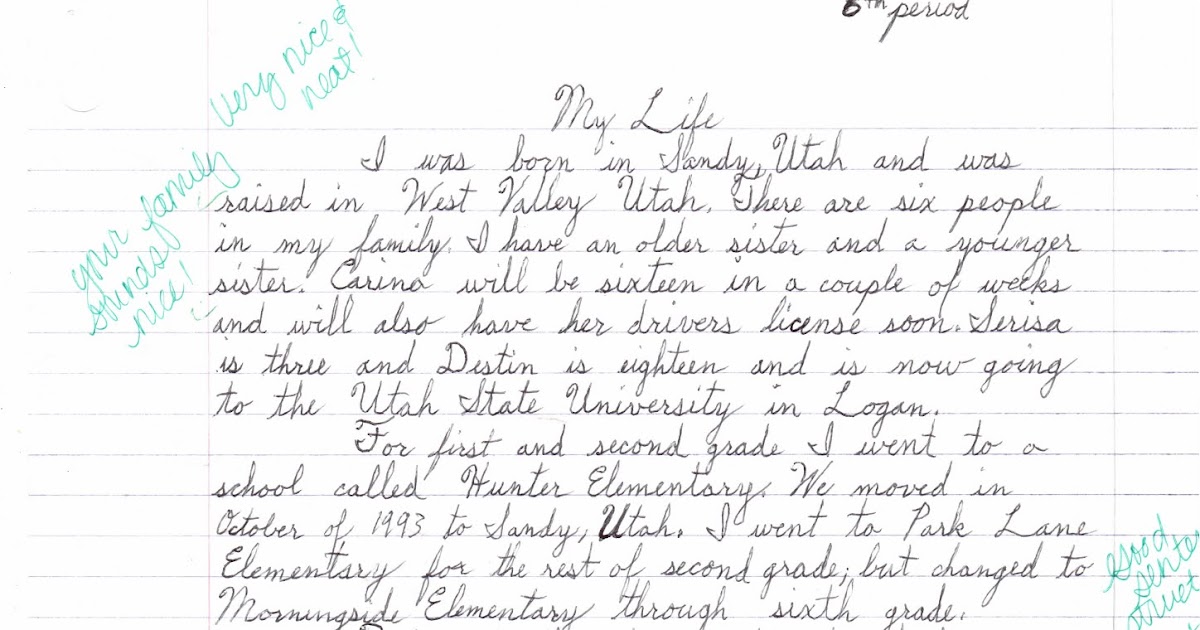 6th period
very nice &
neat!
My Life
I was born in Sandy, Utah and was
raised in West Valley Utah. There are six people
in my family. I have an older sister and a younger
sister. Carina will be sixteen in a couple of weeks
and will also have her drivers license soon. Serisa
is three and Destin is eighteen and is now going
to the Utah State University in Logan.
your family
sounds
nice!
For first and second grade I went to a
school called Hunter Elementary. We moved in
October of 1993 to Sandy, Utah. I went to Park Lane
Elementary for the rest of second grade; but changed to
Morningside Elementary through sixth grade.
Good